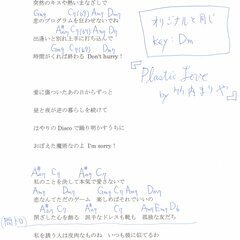 突然のキスや熱いまなざしで
オリジナルと同じ
Key: Dm
Gm7 C7(69) Am7 Dm7
恋のプログラムを狂わせないでね
C7(69) Am7 Dm7
出逢いと別れ上手に打ち込んで
Gm7 C7(69) Am7 Dm7
時間がくれば終わる Don't hurry!
Plastic Love
by 竹内まりや
愛に傷ついたあの日からずっと
昼と夜が逆の暮らしを続けて
はやりの Disco で踊り明かすうちに
おぼえた魔術なのよ I'm sorry!
A# C7 A# C7
私のことを決して本気で愛さないで
Am7 Dm7 Gm7 C7 Am7 Dm7
恋なんてただのゲーム 楽しめばそれでいいの
A# C7 A# C7
閉ざした心を飾る 派手なドレスも靴も 孤独な友だち
私を誘う人は皮肉なものね いつも彼に似てるわ